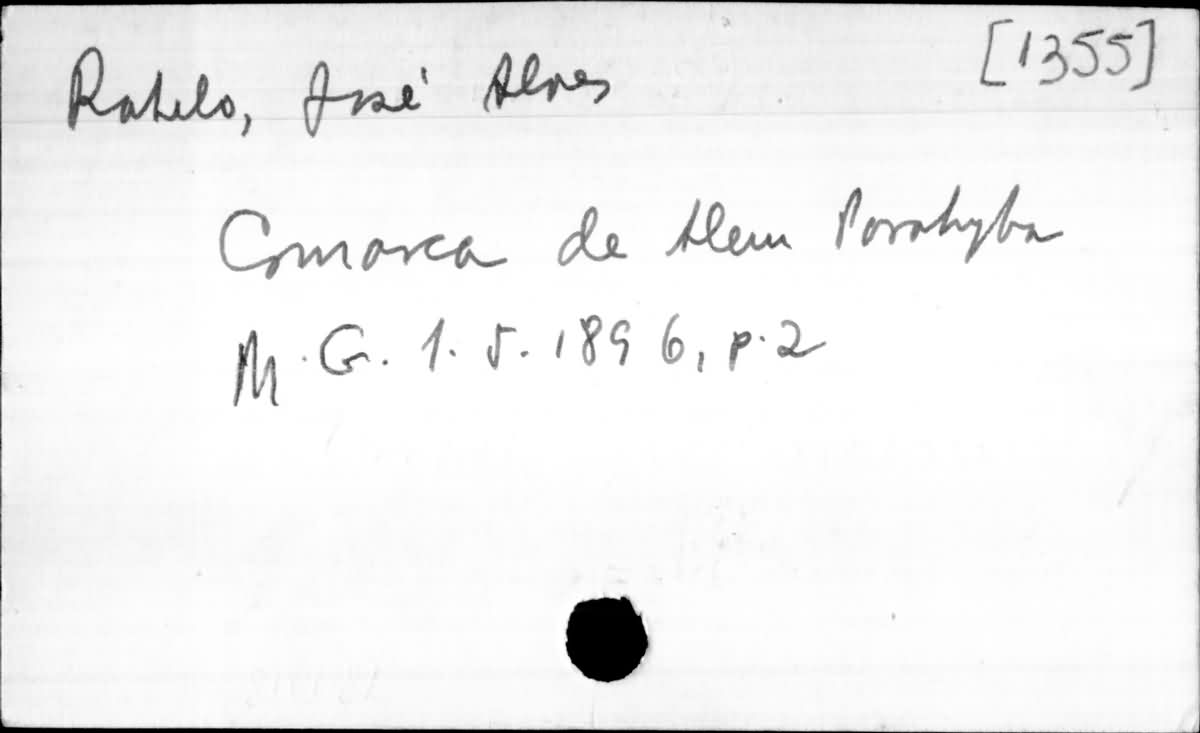 Rabelo, José Alves [1355]
Comarca de Alem Parahyba
M. G. 1. 5. 1896, p. 2